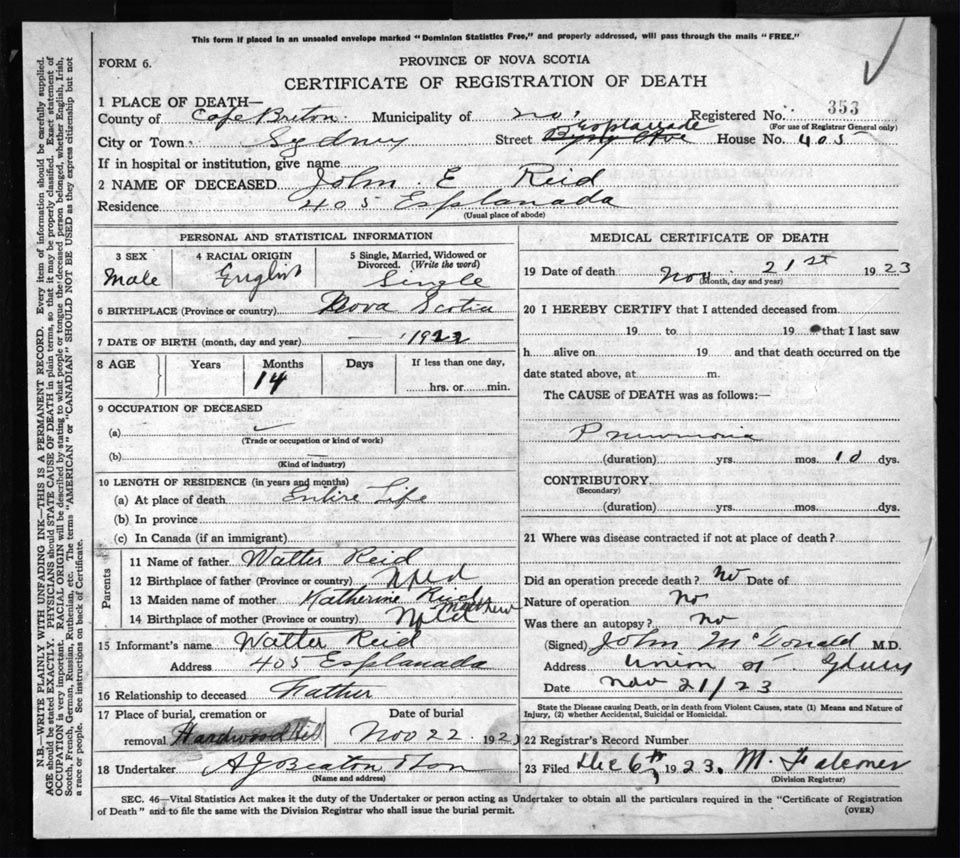 This form if placed in an unsealed envelope marked "Dominion Statistics Free," and properly addressed, will pass through the mails "FREE."
FORM 6.
PROVINCE OF NOVA SCOTIA
CERTIFICATE OF REGISTRATION OF DEATH
1 PLACE OF DEATH—
County of Cape Breton. Municipality of Registered No. 353
(For use of Registrar General only)
City or Town Sydney Street Esplanade House No. 405
If in hospital or institution, give name
2 NAME OF DECEASED John E Reid
Residence 405 Esplanada
(Usual place of abode)
PERSONAL AND STATISTICAL INFORMATION
3 SEX 4 RACIAL ORIGIN 5 Single, Married, Widowed or Divorced. (Write the word)
Male English Single
6 BIRTHPLACE (Province or country) Nova Scotia
7 DATE OF BIRTH (month, day and year) — 1922
8 AGE Years Months Days If less than one day,
14 hrs. or min.
9 OCCUPATION OF DECEASED
(a)
(Trade or occupation or kind of work)
(b)
(Kind of industry)
10 LENGTH OF RESIDENCE (in years and months)
(a) At place of death Entire Life
(b) In province
(c) In Canada (if an immigrant)
Parents
11 Name of father Walter Reid
12 Birthplace of father (Province or country) Nfld
13 Maiden name of mother Katherine Matthew
14 Birthplace of mother (Province or country) Nfld
15 Informant's name Walter Reid
Address 405 Esplanada
16 Relationship to deceased Father
17 Place of burial, cremation or removal Hardwood Hill
Date of burial Nov 22 1923
18 Undertaker A J Beaton & Son
(Name and address)
MEDICAL CERTIFICATE OF DEATH
19 Date of death Nov. 21st 1923
(Month, day and year)
20 I HEREBY CERTIFY that I attended deceased from
19 to 19 that I last saw
h alive on 19 and that death occurred on the
date stated above, at m.
The CAUSE of DEATH was as follows:—
Pneumonia
(duration) yrs. mos. 10 dys.
CONTRIBUTORY
(Secondary)
(duration) yrs. mos. dys.
21 Where was disease contracted if not at place of death?
Did an operation precede death? No Date of
Nature of operation No
Was there an autopsy? No
(Signed) John McDonald M.D.
Address Union St. Sydney
Date Nov 21/23
State the Disease causing Death, or in death from Violent Causes, state (1) Means and Nature of Injury, (2) whether Accidental, Suicidal or Homicidal.
22 Registrar's Record Number
23 Filed Dec 6th 1923. M. Falconer
(Division Registrar)
SEC. 46—Vital Statistics Act makes it the duty of the Undertaker or person acting as Undertaker to obtain all the particulars required in the "Certificate of Registration
of Death" and to file the same with the Division Registrar who shall issue the burial permit. (OVER)
N.B.—WRITE PLAINLY WITH UNFADING INK—THIS IS A PERMANENT RECORD. Every item of information should be carefully supplied.
AGE should be stated EXACTLY. PHYSICIANS should STATE CAUSE OF DEATH in plain terms, so that it may be properly classified. Exact statement of
OCCUPATION is very important. RACIAL ORIGIN will be described by stating to what people or tongue the deceased person belonged, whether English, Irish,
Scotch, French, German, Russian, Ruthenian, etc. The terms "AMERICAN" or "CANADIAN" SHOULD NOT BE USED as they express citizenship but not
a race or people. See instructions on back of Certificate.